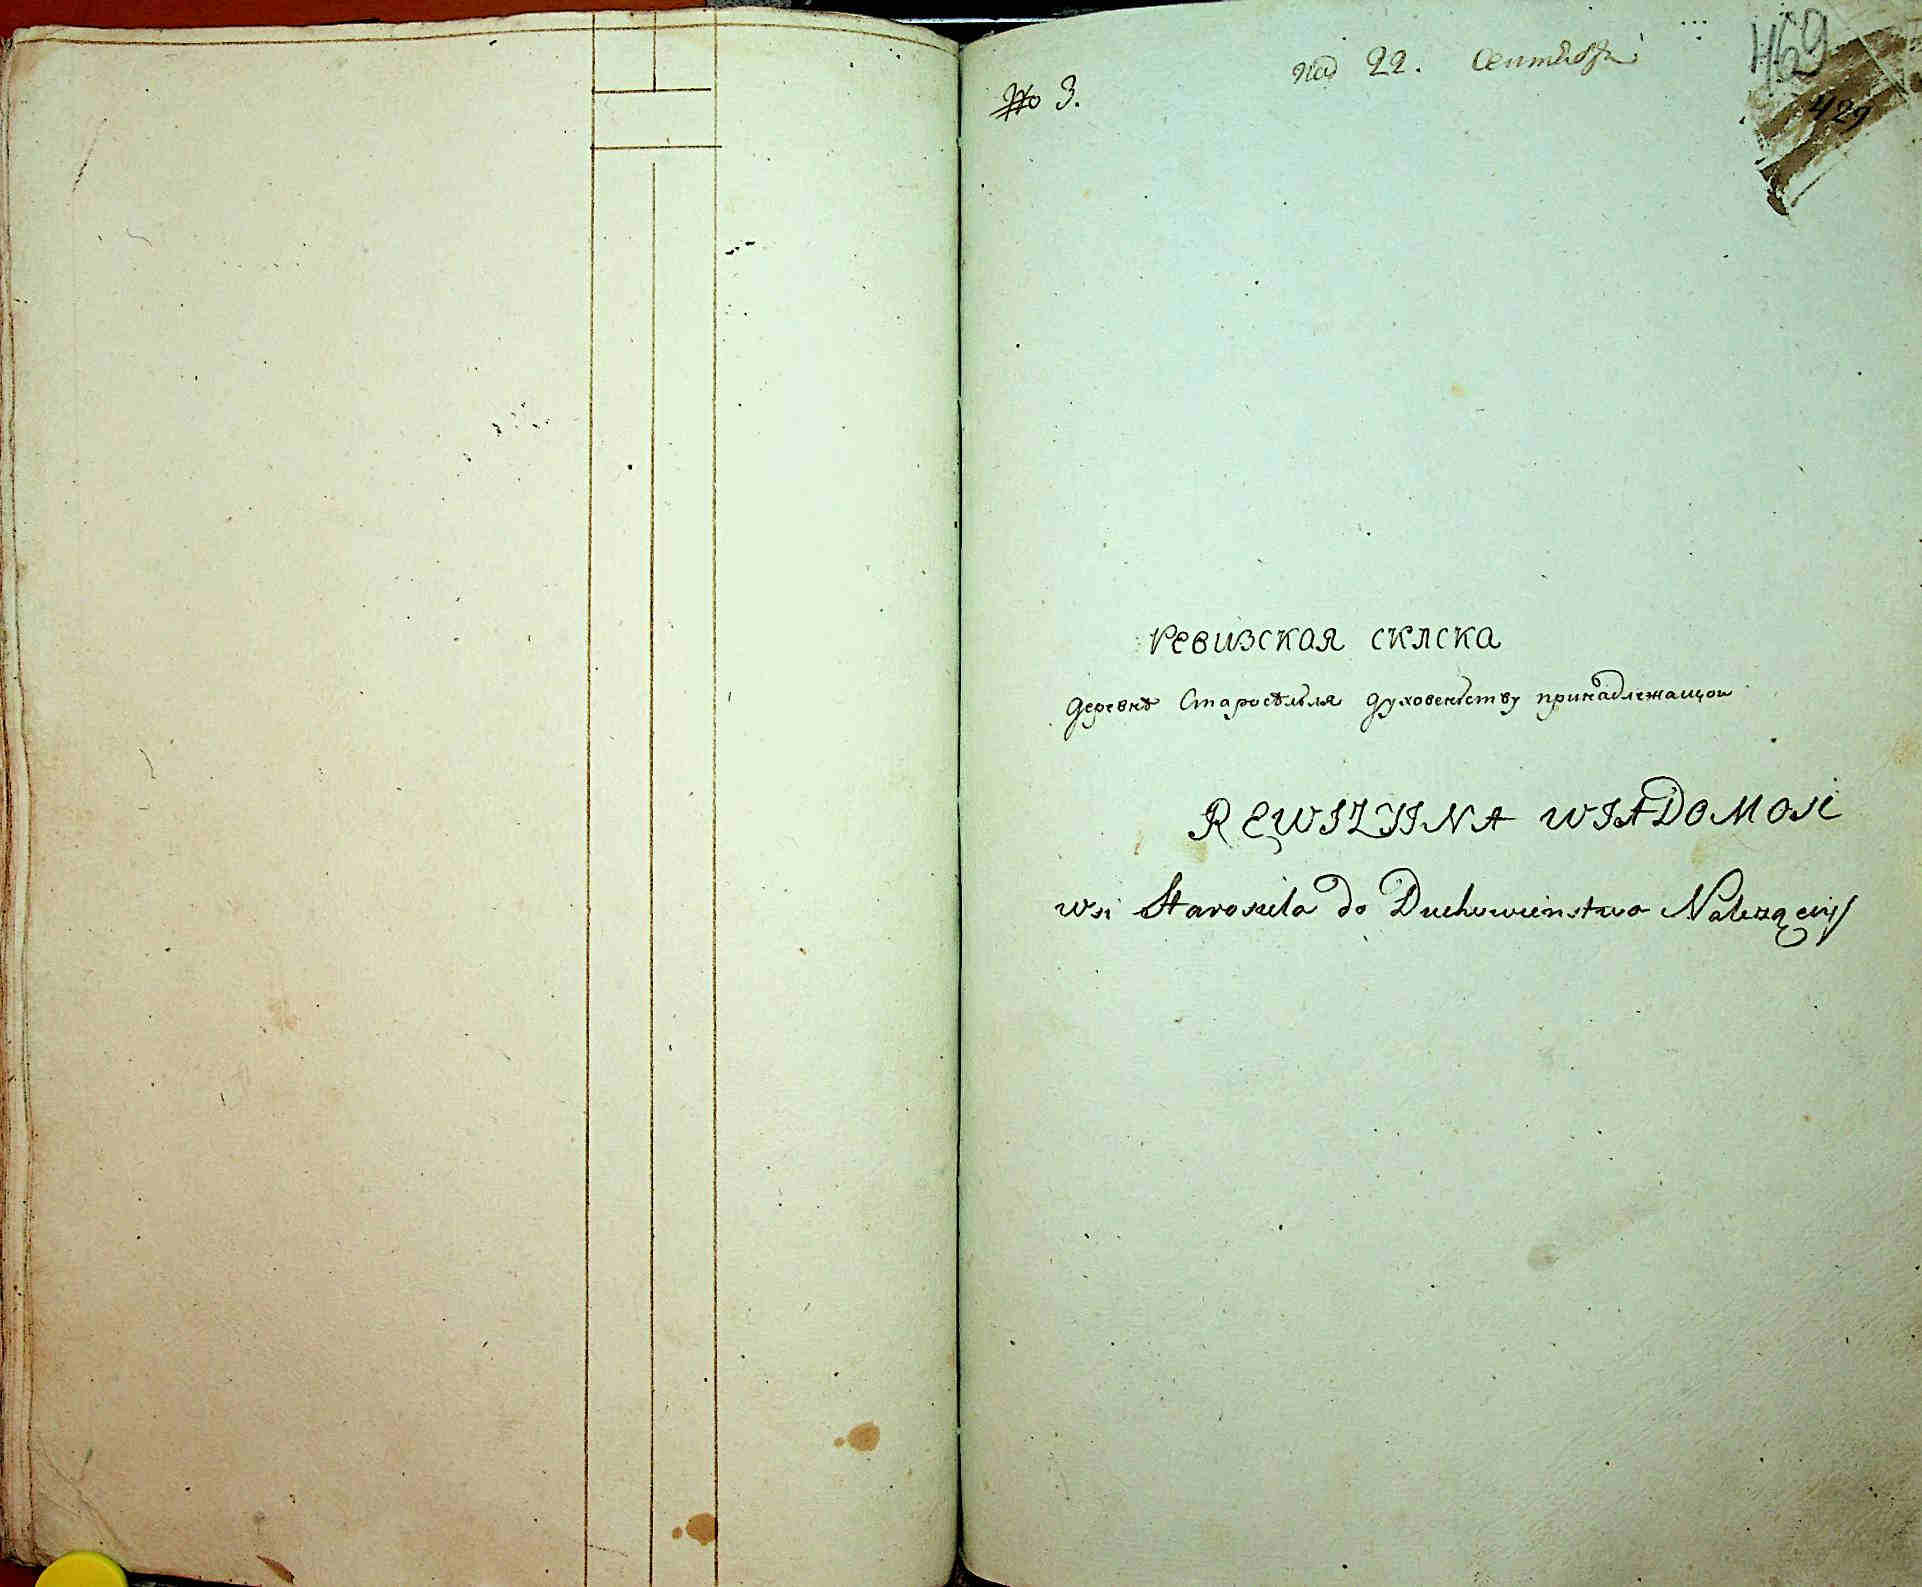 № 3.
под 22. Сентября
469
429
Ревизская склска
деревнѣ Старосѣлья духовенству принадлежащои
REWIZIINA WIADOMOSĆ
wsi Starosiela do Duchowieństwa Nalezącey